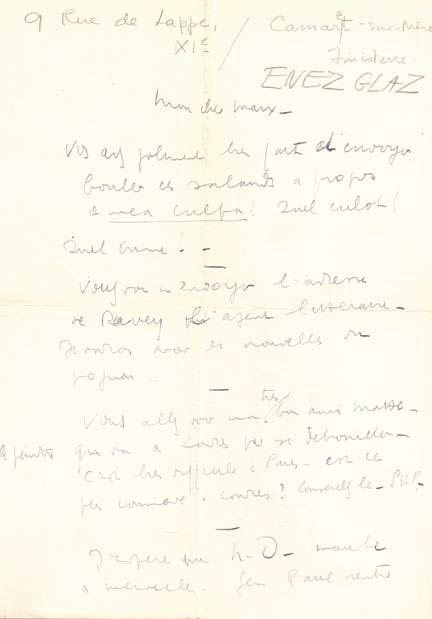 9 Rue de Lappe, / Camaret-sur-Mer
XIe Finisterre
ENEZ GLAZ
Mon cher Marx –
Vs avez joliment bien fait d'envoyer
bouler ces salauds à propos
de mea culpa! Quel culot!
Quel crime! –
Voulez vous m'envoyer l'adresse
de l'agent litteraire –
Je voudrais avoir des nouvelles du
pognon –
Vous allez voir mon très bon ami –
le peintre qui va à Londres pour se debrouiller –
C'est très difficile à Paris – est ce
pas commode. Londres? Conseillez le – S.V.P. –
J'espère que marche
a merveille. Gen Paul rentre